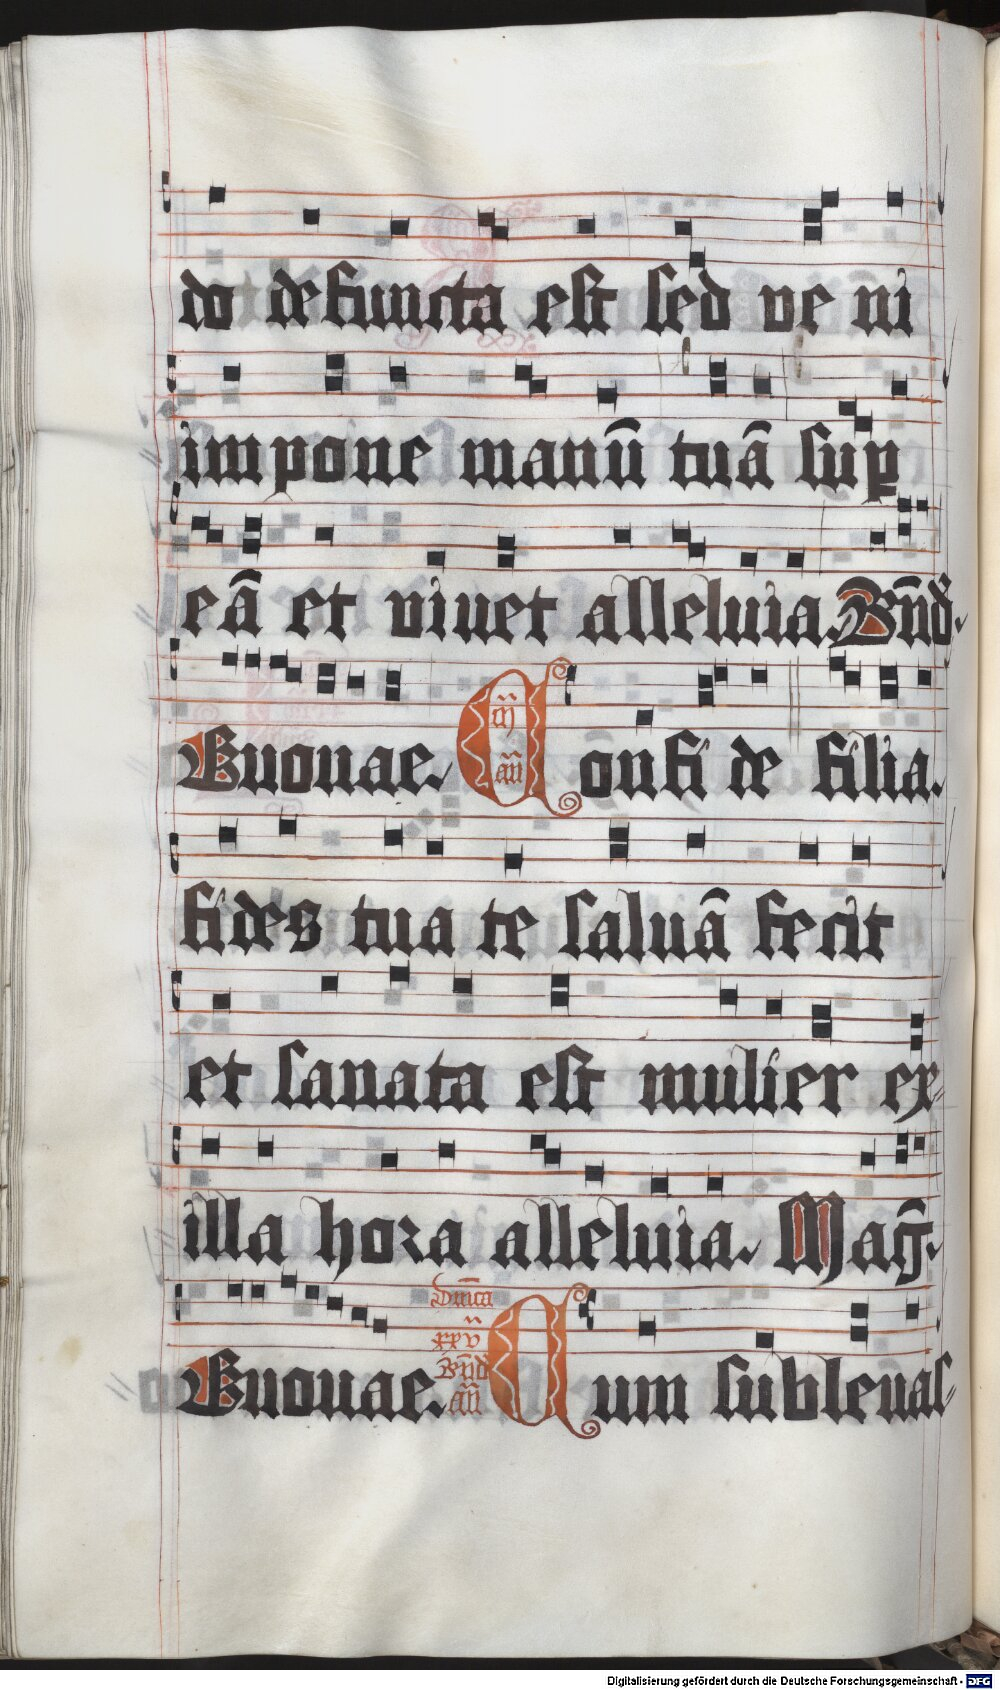 do defuncta est sed ve ni
impone manū tuā sup
eā et vivet alleluia. Bn̄d.
Euouae. Confi de filia.
In
an̄
fides tua te saluā fecit
et sanata est mulier ex
illa hora alleluia. Mag.
Euouae. Cum subleuas
Dn̄ica
xxv
Bn̄d
an̄
Digitalisierung gefördert durch die Deutsche Forschungsgemeinschaft - DFG